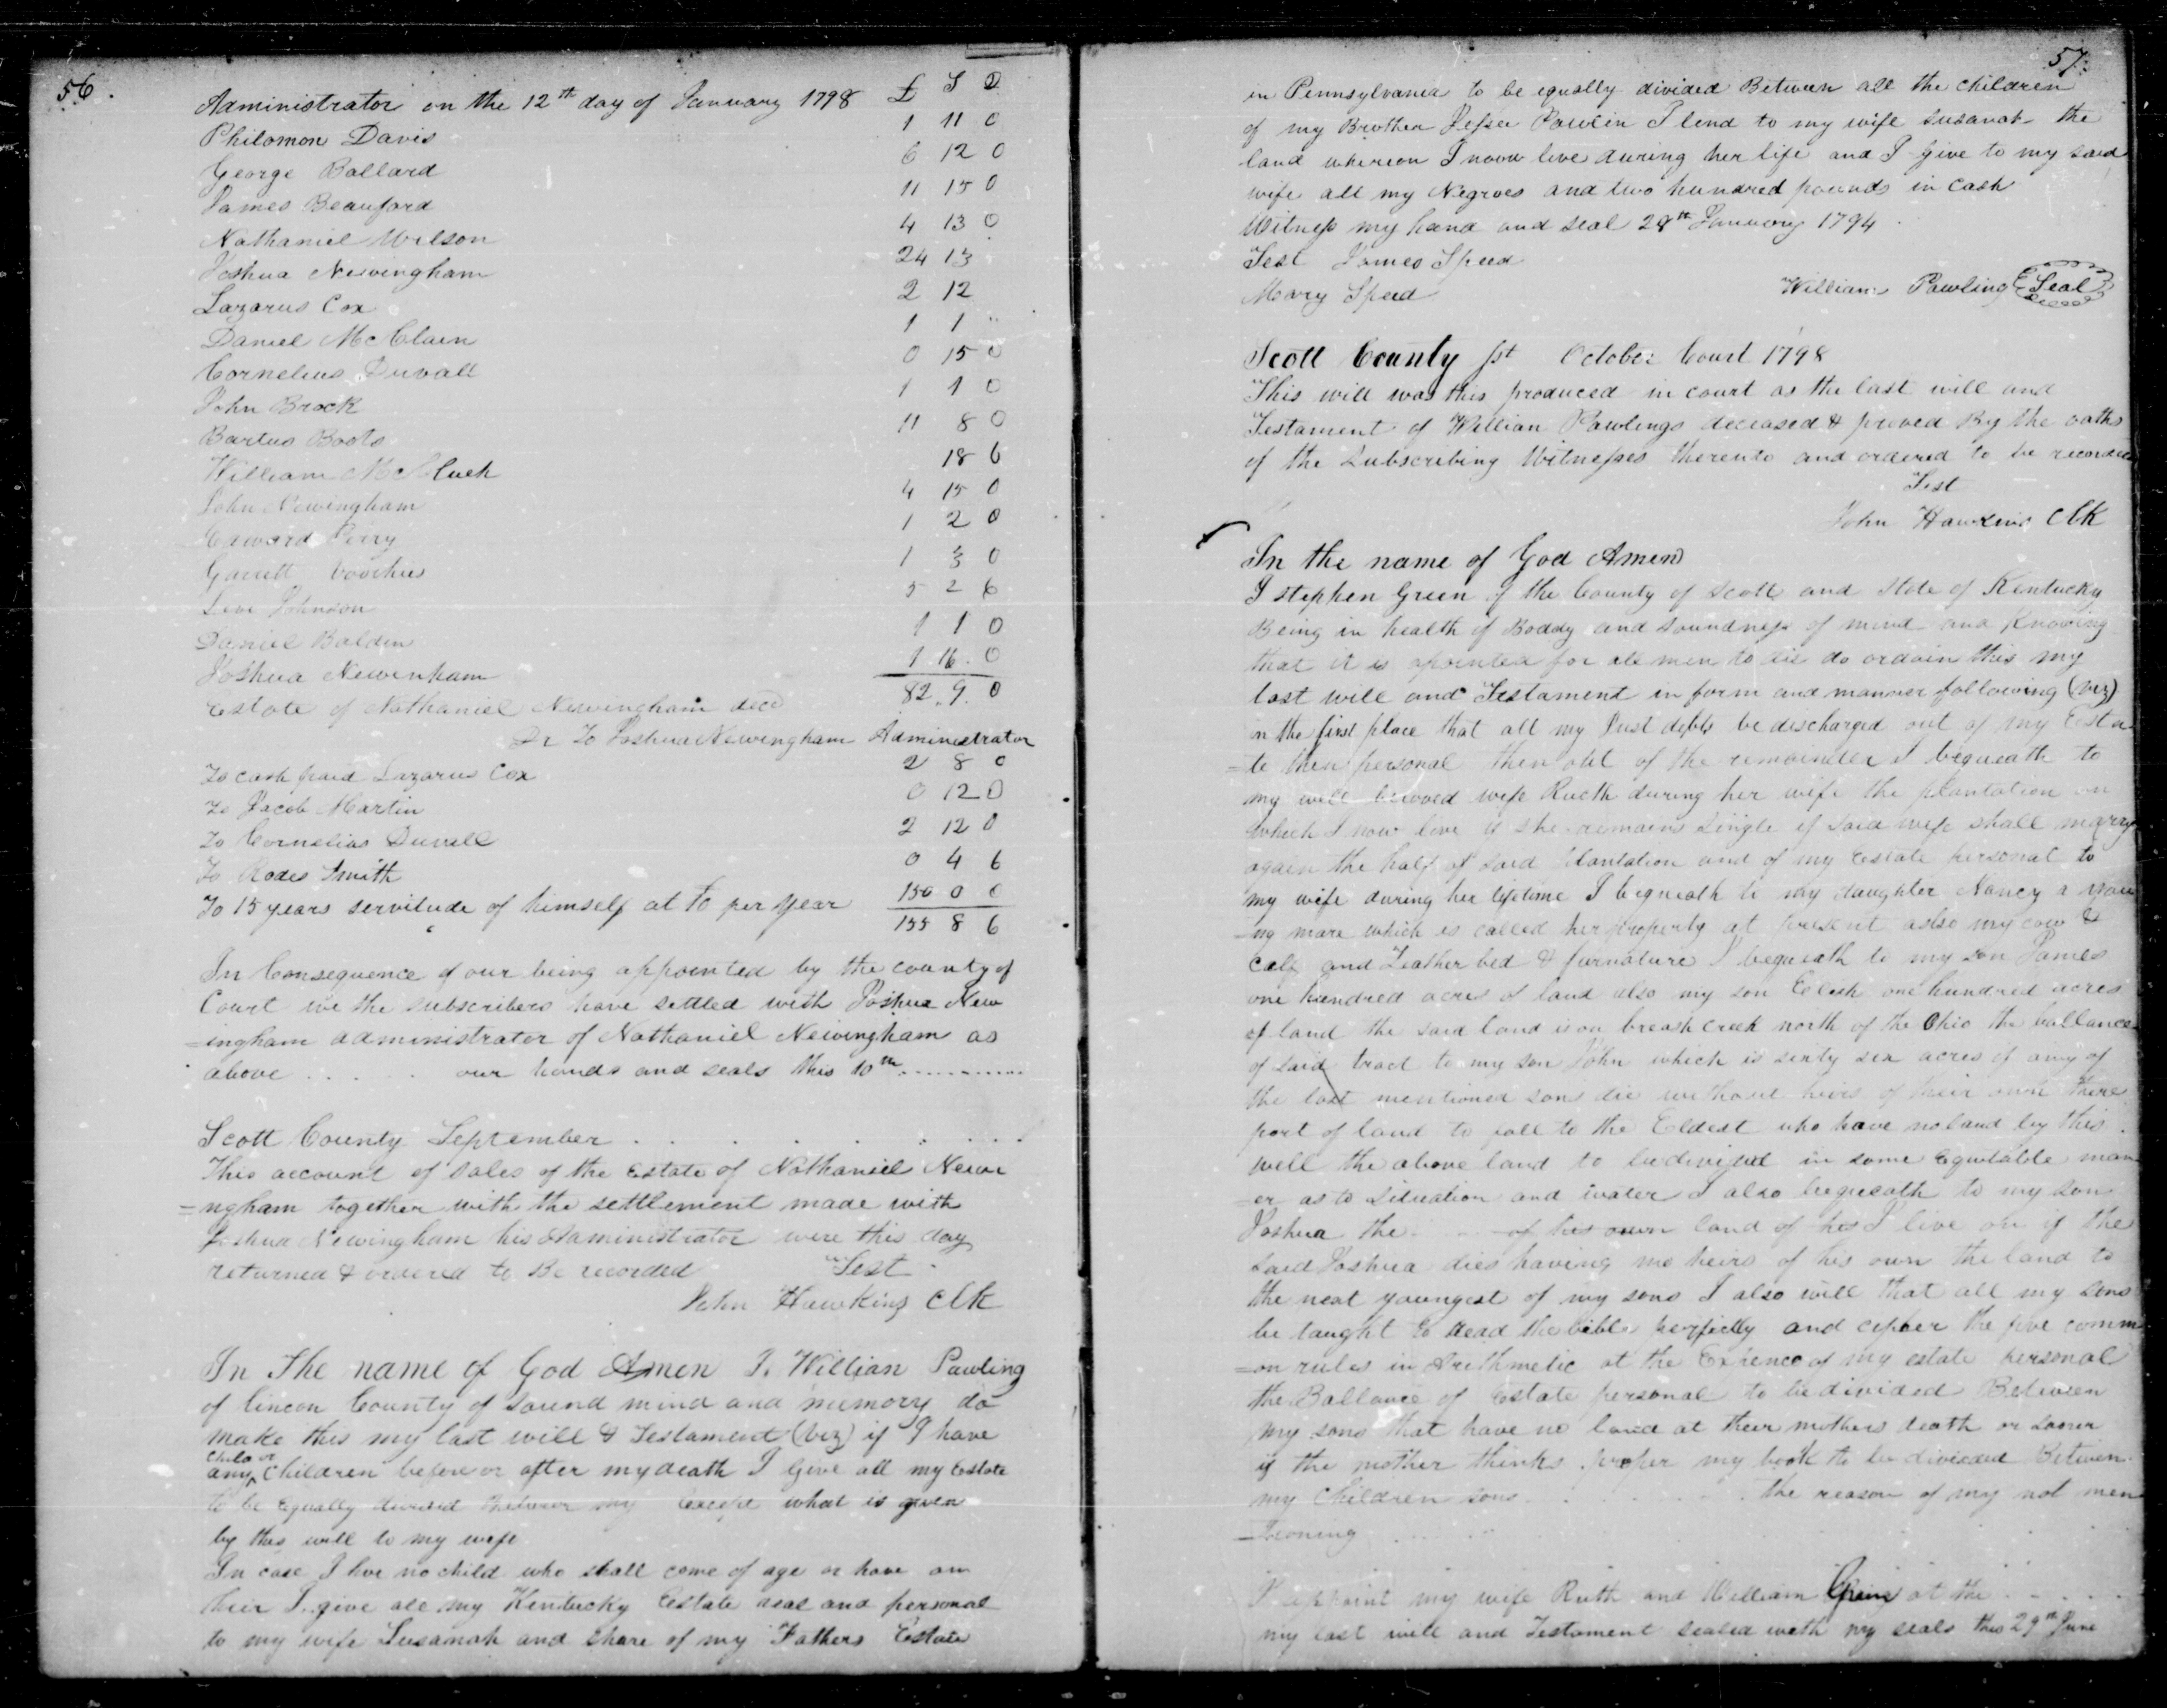 56.
Administrator on the 12th day of January 1798 £ S D
Philomon Davis 1 11 0
George Ballard 6 12 0
James Beauford 11 15 0
Nathaniel Wilson 4 13 0
Joshua Newingham 24 13
Lazarus Cox 2 12
Daniel McClain 1 1 "
Cornelius Duvall 0 15 0
John Brock 1 1 0
Bartus Boots 11 8 0
William 18 6
John Newingham 4 15 0
Edward Perry 1 2 0
Garrett Voorhies 1 3 0
Levi Johnson 5 2 6
Daniel Balden 1 1 0
Joshua Newenham 1 16. 0
Estate of Nathaniel Newingham decd 82. 9. 0
Dr To Joshua Newingham Administrator
To cash paid Lazarus Cox 2 8 0
To Jacob Martin 0 12 0
To Cornelius Duvall 2 12 0
To Rodes Smith 0 4 6
To 15 years servitude of himself at per year 150 0 0
155 8 6
In Consequence of our being appointed by the county of
Court we the subscribers have settled with Joshua New
=ingham administrator of Nathaniel Newingham as
above . . . . . our hands and seals this 10th ............
Scott County September . . . . . . . .
This account of sales of the Estate of Nathaniel Newi
=ngham together with the settlement made with
Joshua Newingham his Administrator were this day
returned & ordered to Be recorded Test
John Hawkins Clk
In The name of God Amen I. Willian Pawling
of lincon County of sound mind and memory do
make this my last will & Testament (viz) if I have
child or
any ^ Children before or after my death I Give all my Estate
to be Equally divided Between my Except what is given
by this will to my wife
In case I live no child who shall come of age or have an
heir I give all my Kentucky Estate real and personal
to my wife Susanah and share of my Fathers Estate
57.
in Pennsylvania to be equally divided Between all the children
of my Brother Jesse Pawlin I lend to my wife Susanah the
land whereon I now live during her life and I Give to my said
wife all my Negroes and two hundred pounds in cash
Witness my hand and seal 28th January 1794.
Test James Speed
Mary Speed William Pawling Seal
Scott County Sst October Court 1798
This will was this produced in court as the last will and
Testament of Willian Pawlings deceased & proved By the oaths
of the Subscribing Witnesses thereunto and ordered to be recorded
Test
John Hawkins Clk
In the name of God Amen
I stephen Green of the County of Scott and State of Kentucky
Being in health of Boddy and soundness of mind and Knowing
that it is apointed for all men to die do ordain this my
last will and Testament in form and manner following (viz)
in the first place that all my Just debts be discharged out of my Esta
=te then personal then out of the remainder I bequeath to
my well beloved wife Ructh during her wife the plantation on
which I now live if she remains single if said wife shall marry
again the half of said Plantation and of my Estate personal to
my wife during her lifetime I bequeath to my daughter Nancy a you
=ng mare which is called her property at present aslso my cow &
Calf and Feather bed & furnature I bequeath to my son James
one hundred acres of land also my son one hundred acres
of land the said land is on creek north of the Ohio the ballance
of said tract to my son John which is sixty six acres if any of
the last mentioned sons die without heirs of their own there
part of land to fall to the Eldest who have no land by this
will the above land to be divided in some Equitable man
=er as to Situation and water I also bequeath to my son
Joshua the . . . . of his own land of his I live on if the
said Joshua dies having no heirs of his own the land to
the next youngest of my sons I also will that all my sons
be taught to Read the bible perfectly and cipher the five comm
=on rules in Arithmetic at the Expence of my estate personal
the Ballance of Estate personal to be divided Between
my sons that have no land at their mothers death or sooner
if the mother thinks proper my book to be divided Between
my Children sons . . . . . . . the reason of my not men
=tioning . . . . .
I appoint my wife Ruth and William at the . . . .
my last will and Testament sealed with my seals this 29th June